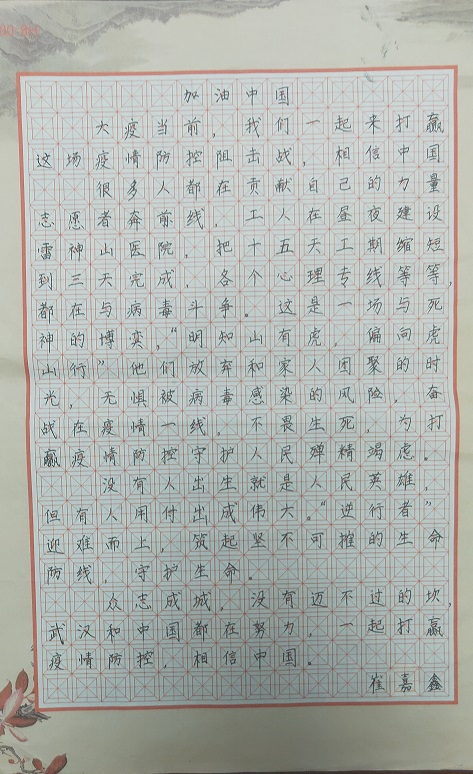 加油中国
大疫当前，我们一起来打赢
这场疫情防控阻击战，相信中国
很多人都在贡献自己的力量
志愿者奔前线，工人在昼夜建设
雷神山医院，把十五天工期缩短
到三天完成，各个心理专线等等，
都在与病毒斗争。这是一场与死
神的博奕，“明知山有虎，偏向虎
山行”他们放弃和家人团聚的时
光，无惧被病毒感染的风险，奋
战在疫情一线，不畏生死，为打
赢疫情防控守护人民殚精竭虑。
没有人出生就是人民英雄，
但有人用付出成伟大。“逆行者”
迎难而上，筑起坚不可摧的生命
防线，守护生命。
众志成城，没有迈不过的坎，
武汉和中国都在努力，一起打赢
疫情防控，相信中国。
崔嘉鑫